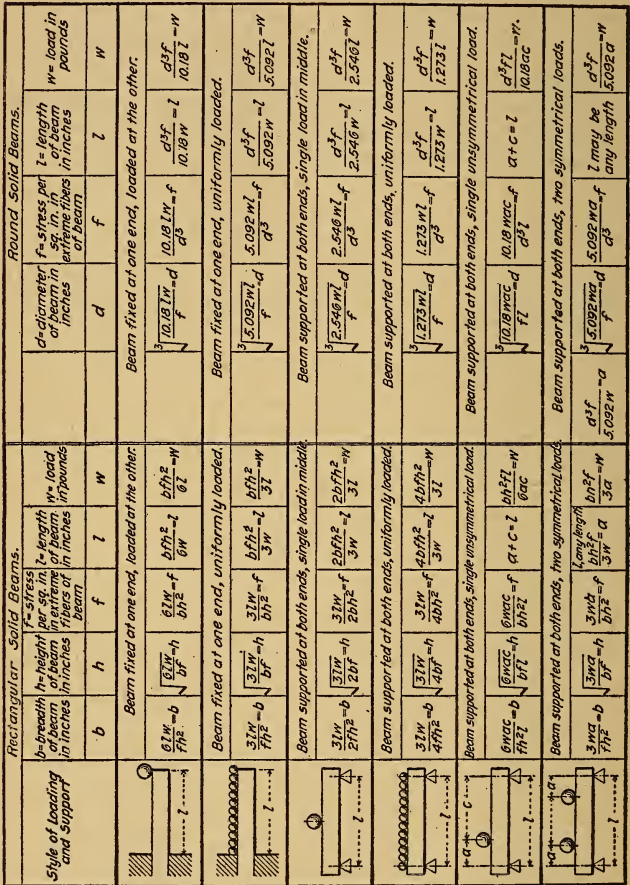 Rectangular Solid Beams.
Round Solid Beams.
Style of Loading and Support
b=breadth of beam in inches
h=height of beam in inches
f=stress per sq. in. in extreme fibers of beam
l=length of beam in inches
w=load in pounds
d=diameter of beam in inches
f=stress per sq. in. in extreme fibers of beam
l=length of beam in inches
w=load in pounds
b h f l w d f l w
Beam fixed at one end, loaded at the other.
Beam fixed at one end, loaded at the other.
l
6lw/fh²=b
√(6lw/bf)=h
6lw/bh²=f
bfh²/6w=l
bfh²/6l=w
³√(10.18lw/f)=d
10.18lw/d³=f
d³f/10.18w=l
d³f/10.18l=w
Beam fixed at one end, uniformly loaded.
Beam fixed at one end, uniformly loaded.
l
3lw/fh²=b
√(3lw/bf)=h
3lw/bh²=f
bfh²/3w=l
bfh²/3l=w
³√(5.092wl/f)=d
5.092wl/d³=f
d³f/5.092w=l
d³f/5.092l=w
Beam supported at both ends, single load in middle.
Beam supported at both ends, single load in middle.
l
3lw/2fh²=b
√(3lw/2bf)=h
3lw/2bh²=f
2bfh²/3w=l
2bfh²/3l=w
³√(2.546wl/f)=d
2.546wl/d³=f
d³f/2.546w=l
d³f/2.546l=w
Beam supported at both ends, uniformly loaded.
Beam supported at both ends, uniformly loaded.
l
3lw/4fh²=b
√(3lw/4bf)=h
3lw/4bh²=f
4bfh²/3w=l
4bfh²/3l=w
³√(1.273wl/f)=d
1.273wl/d³=f
d³f/1.273w=l
d³f/1.273l=w
Beam supported at both ends, single unsymmetrical load.
Beam supported at both ends, single unsymmetrical load.
a c
l
6wac/fh²l=b
√(6wac/bfl)=h
6wac/bh²l=f
a+c=l
bh²fl/6ac=w
³√(10.18wac/fl)=d
10.18wac/d³l=f
a+c=l
d³fl/10.18ac=w.
Beam supported at both ends, two symmetrical loads.
Beam supported at both ends, two symmetrical loads.
a a
l
3wa/fh²=b
√(3wa/bf)=h
3wa/bh²=f
l, any length
bh²f/3w=a
bh²f/3a=w
d³f/5.092w=a
³√(5.092wa/f)=d
5.092wa/d³=f
l may be any length
d³f/5.092a=w